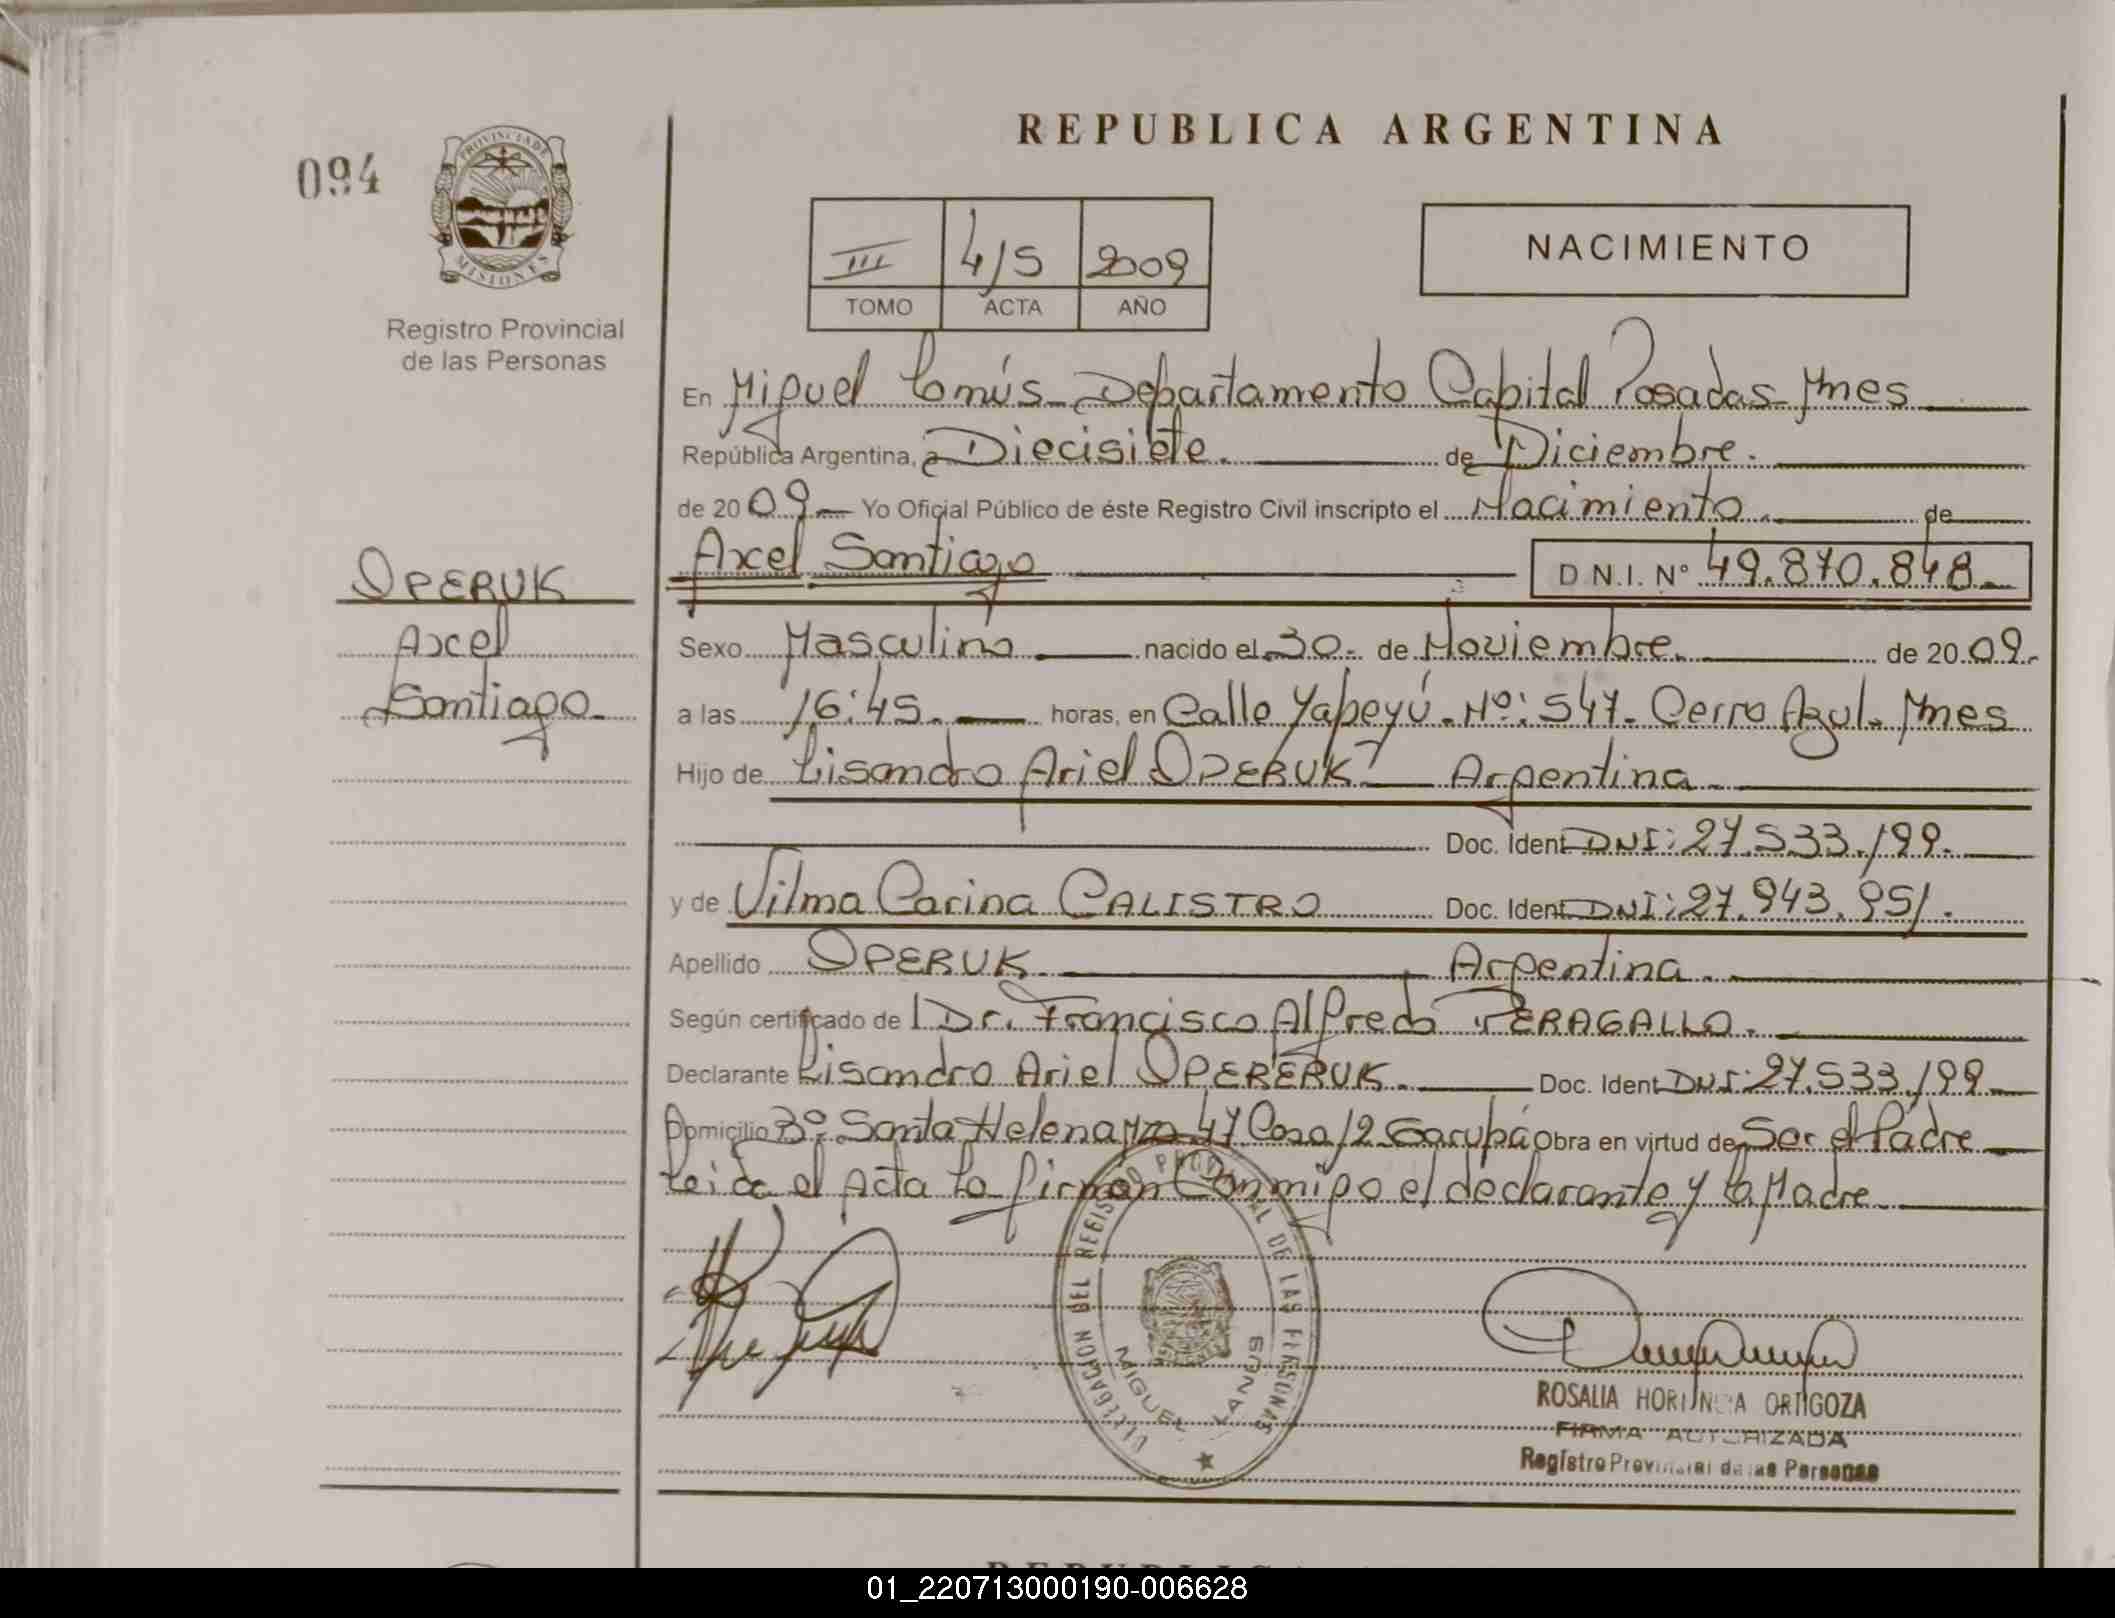 REPUBLICA ARGENTINA
094
PROVINCIA DE
MISIONES
Registro Provincial
de las Personas
III 4/5 2009
TOMO ACTA AÑO
NACIMIENTO
En Miguel Lanús - Departamento Capital Posadas - Mnes
República Argentina, a Diecisiete. de Diciembre.
de 20 09 Yo Oficial Público de éste Registro Civil inscripto el Nacimiento. de
Axel Santiago D N.I. Nº 49.870.848
OPERUK
Axel
Santiago
Sexo Masculino nacido el 30. de Noviembre. de 20 09.
a las 16:45. horas, en Calle Yapeyú. Nº: 547. Cerro Azul. Mnes
Hijo de Lisandro Ariel OPERUK Argentina
Doc. Ident DNI: 27.533.199.
y de Vilma Carina CALISTRO Doc. Ident DNI: 27.943.951.
Apellido OPERUK. Argentina.
Según certificado de Dr. Francisco Alfredo PERAGALLO.
Declarante Lisandro Ariel OPERERUK. Doc. Ident DNI: 27.533.199
Domicilio Bº. Santa Helena Mza 47 Casa 12 Garupá Obra en virtud de Ser el Padre
Leida el Acta la firman Conmigo el declarante y la Madre
DELEGACION DEL REGISTRO PROVINCIAL DE LAS PERSONAS
MIGUEL LANUS
ROSALIA HORTENCIA ORTIGOZA
FIRMA AUTORIZADA
Registro Provincial de las Personas
01_220713000190-006628